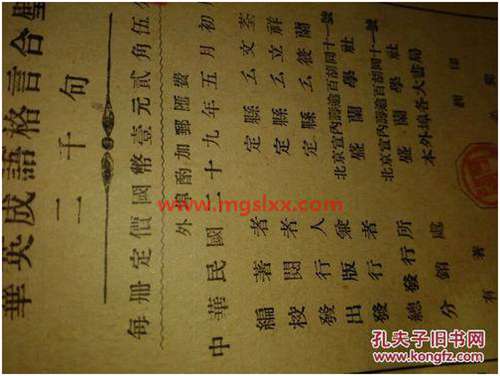 華英成語格言合璧
二千句
每冊定價國幣壹元貳角伍
外埠酌加郵匯費
中華民國二十九年五月初
編著者 定縣 么文荃
校閱者 定縣 么立祥
發行人 定縣 么 蘭
出版兼 北京宣內壽逾百胡同十一號
發行者 盛蘭學社
總發行所 北京宣內壽逾百胡同十一號
盛蘭學社
分銷處 本外埠各大書局
有著
www.mgslxx.com
孔夫子旧书网
www.kongfz.com